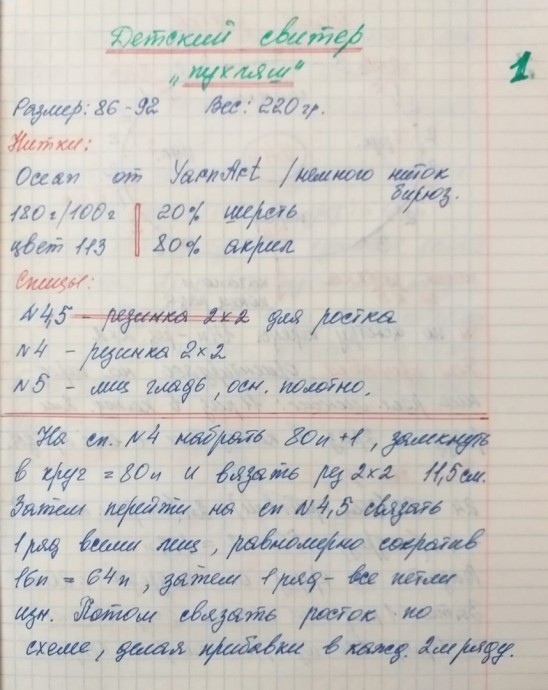 Детский свитер
„пухляш"
1.
Размер: 86-92 Вес: 220гр.
Нитки:
Ocean от YarnArt /немного ниток
бирюз.
180г/100г 20% шерсть
цвет 113 80% акрил
Спицы:
N4,5 - резинка 2×2 для ростка
N4 - резинка 2×2
N5 - лиц гладь, осн. полотно.
На сп. N4 набрать 80п+1, замкнуть
в круг = 80п и вязать рез 2×2 11,5см.
Затем перейти на сп N4,5 связать
1ряд всеми лиц, равномерно сократив
16п = 64п, затем 1ряд - все петли
изн. Потом связать росток по
схеме, делая прибавки в кажд. 2м ряду.